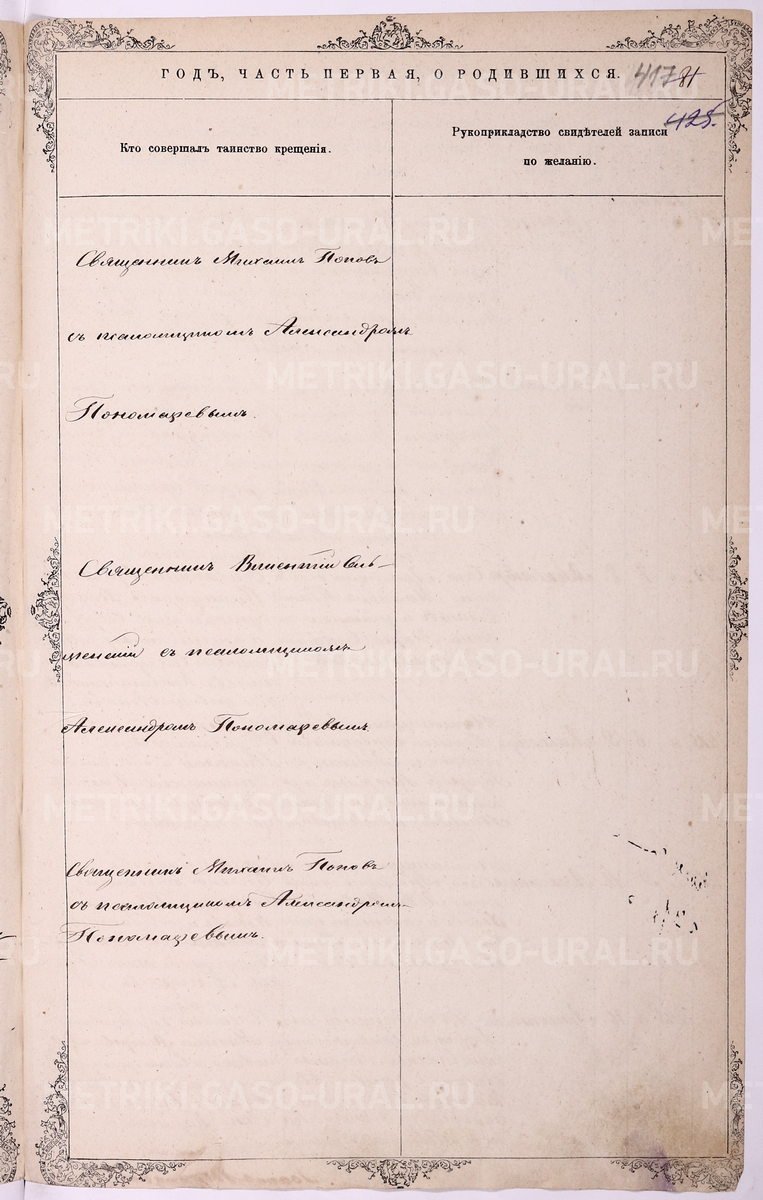 ГОДЪ, ЧАСТЬ ПЕРВАЯ, О РОДИВШИХСЯ. 417
425.
Кто совершалъ таинство крещенія.
Рукоприкладство свидѣтелей записи
по желанію.
Священникъ Михаилъ Поповъ
съ псаломщикомъ Александромъ
Пономаревымъ.
Священникъ
съ псаломщикомъ
Александромъ Пономаревымъ
Священникъ Михаилъ Поповъ
съ псаломщикомъ Александромъ
Пономаревымъ.
METRIKI.GASO-URAL.RU